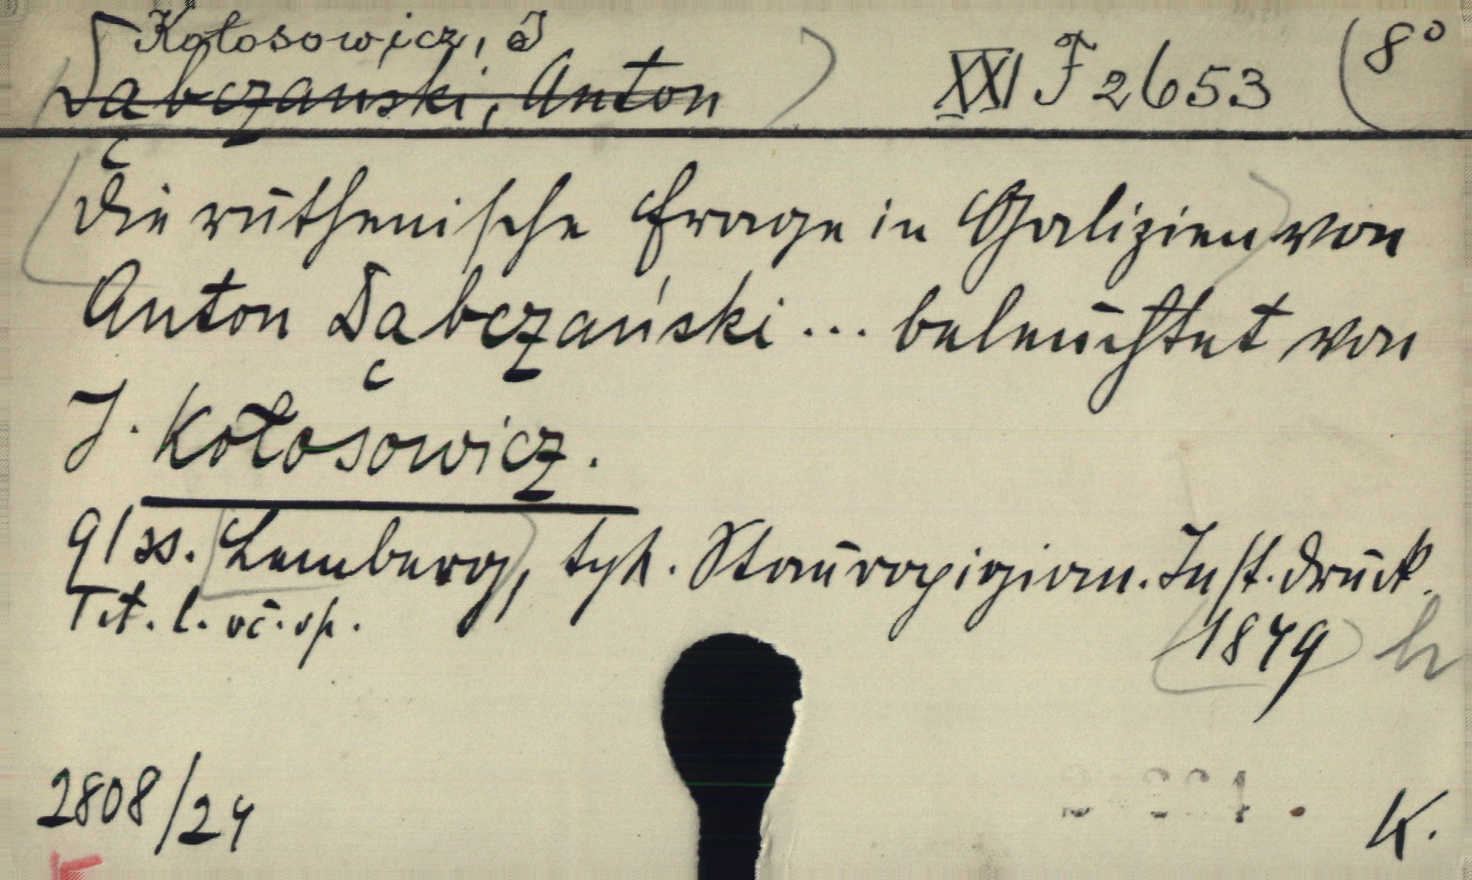 Kołosowicz, J
Dąbczanski, Anton
XXI F 2653
8°
Die ruthenische Frage in Galizien von
Anton Dąbczański ... beleuchtet von
J. Kołosowicz.
91 ss. Lemberg, typ. Stauropigian. Inst. druck.
Tit. l. vč. op.
1849
h
2808/24
K.